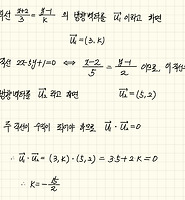 직선 x+2/3 = y-1/k 의 방향벡터를 u₁ 이라고 하면
u₁ = (3, k)
직선 2x-5y+1=0 ⇔ x-2/5 = y-1/2 이므로, 이 직선의
방향벡터를 u₂ 라고 하면 u₂ = (5, 2)
두 직선이 수직이 되어야 하므로 u₁ · u₂ = 0
∴ u₁ · u₂ = (3, k) · (5, 2) = 3·5 + 2k = 0
∴ k = - 15/2